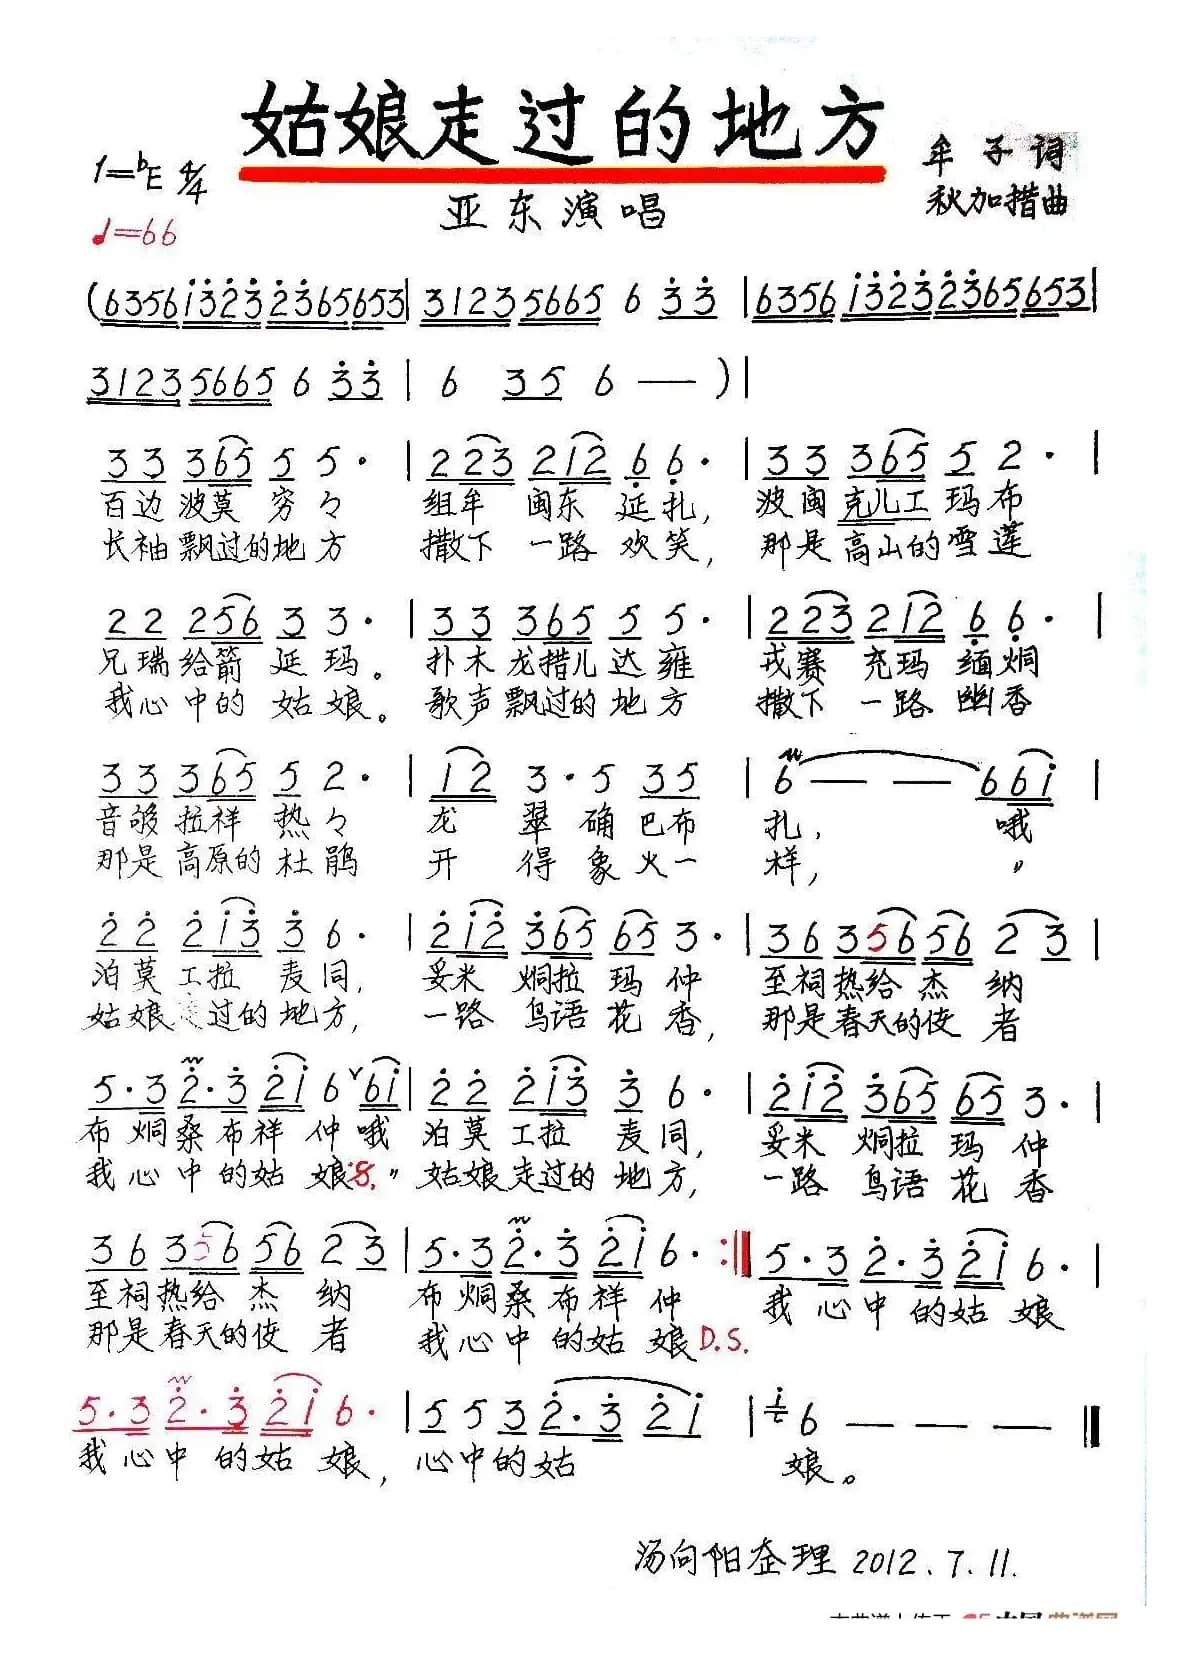 姑娘走过的地方
1=bE 4/4
牟子词
♩=66
亚东演唱
秋加措曲
(6356i3232365653 | 31235665 6 33 | 6356i3232365653 |
31235665 6 33 | 6 35 6 — ) |
33 365 5 5· | 223 212 6 6· | 33 365 5 2· |
百边波莫穷々 组牟闽东延扎, 波闽克儿工玛布
长袖飘过的地方 撒下一路欢笑, 那是高山的雪莲
22 256 3 3· | 33 365 5 5· | 223 212 6 6· |
兄瑞给箭延玛。 扑木龙措儿达雍 戎赛充玛缅炯
我心中的姑娘。 歌声飘过的地方 撒下一路幽香
33 365 5 2· | 12 3·5 35 | 6 — — 66i |
音够拉祥热々 龙翠确巴布 扎, 哦
那是高原的杜鹃 开得象火一 样, 〃
22 2i3 3 6· | 2i2 365 65 3· | 36 356 56 2 3 |
泊莫工拉麦同, 妥米炯拉玛仲 至祠热给杰纳
姑娘走过的地方, 一路鸟语花香, 那是春天的使者
5·3 2·3 2i 6 6i | 22 2i3 3 6· | 2i2 365 65 3· |
布炯桑布祥仲哦 泊莫工拉麦同, 妥米炯拉玛仲
我心中的姑娘 〃 姑娘走过的地方, 一路鸟语花香
36 356 56 2 3 | 5·3 2·3 2i 6· :‖ 5·3 2·3 2i 6· |
至祠热给杰纳 布炯桑布祥仲 我心中的姑娘
那是春天的使者 我心中的姑娘 D.S.
5·3 2·3 2i 6· | 5 5 3 2·3 2i | 6 — — — ‖
我心中的姑娘, 心中的姑 娘。
汤向阳整理 2012.7.11.